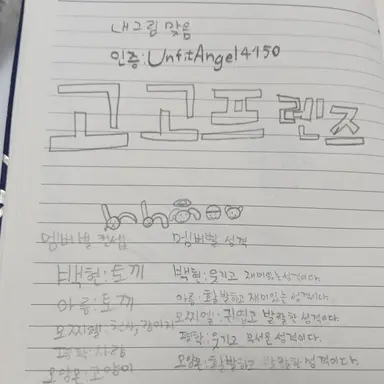 내그림 맞음
인증:UnfitAngel4150
고고프렌즈
멤버별 컨셉 멤버별 성격
백현:토끼 백현:웃기고 재미있는성격이다.
아름:토끼 아름:활발하고 재미있는성격이다.
모찌엘:천사,강아지 모찌엘:귀엽고 발랄한 성격이다.
웃기고 무서운 성격이다.
모양몬:고양이 모양몬:활발하고 발랄한 성격이다.